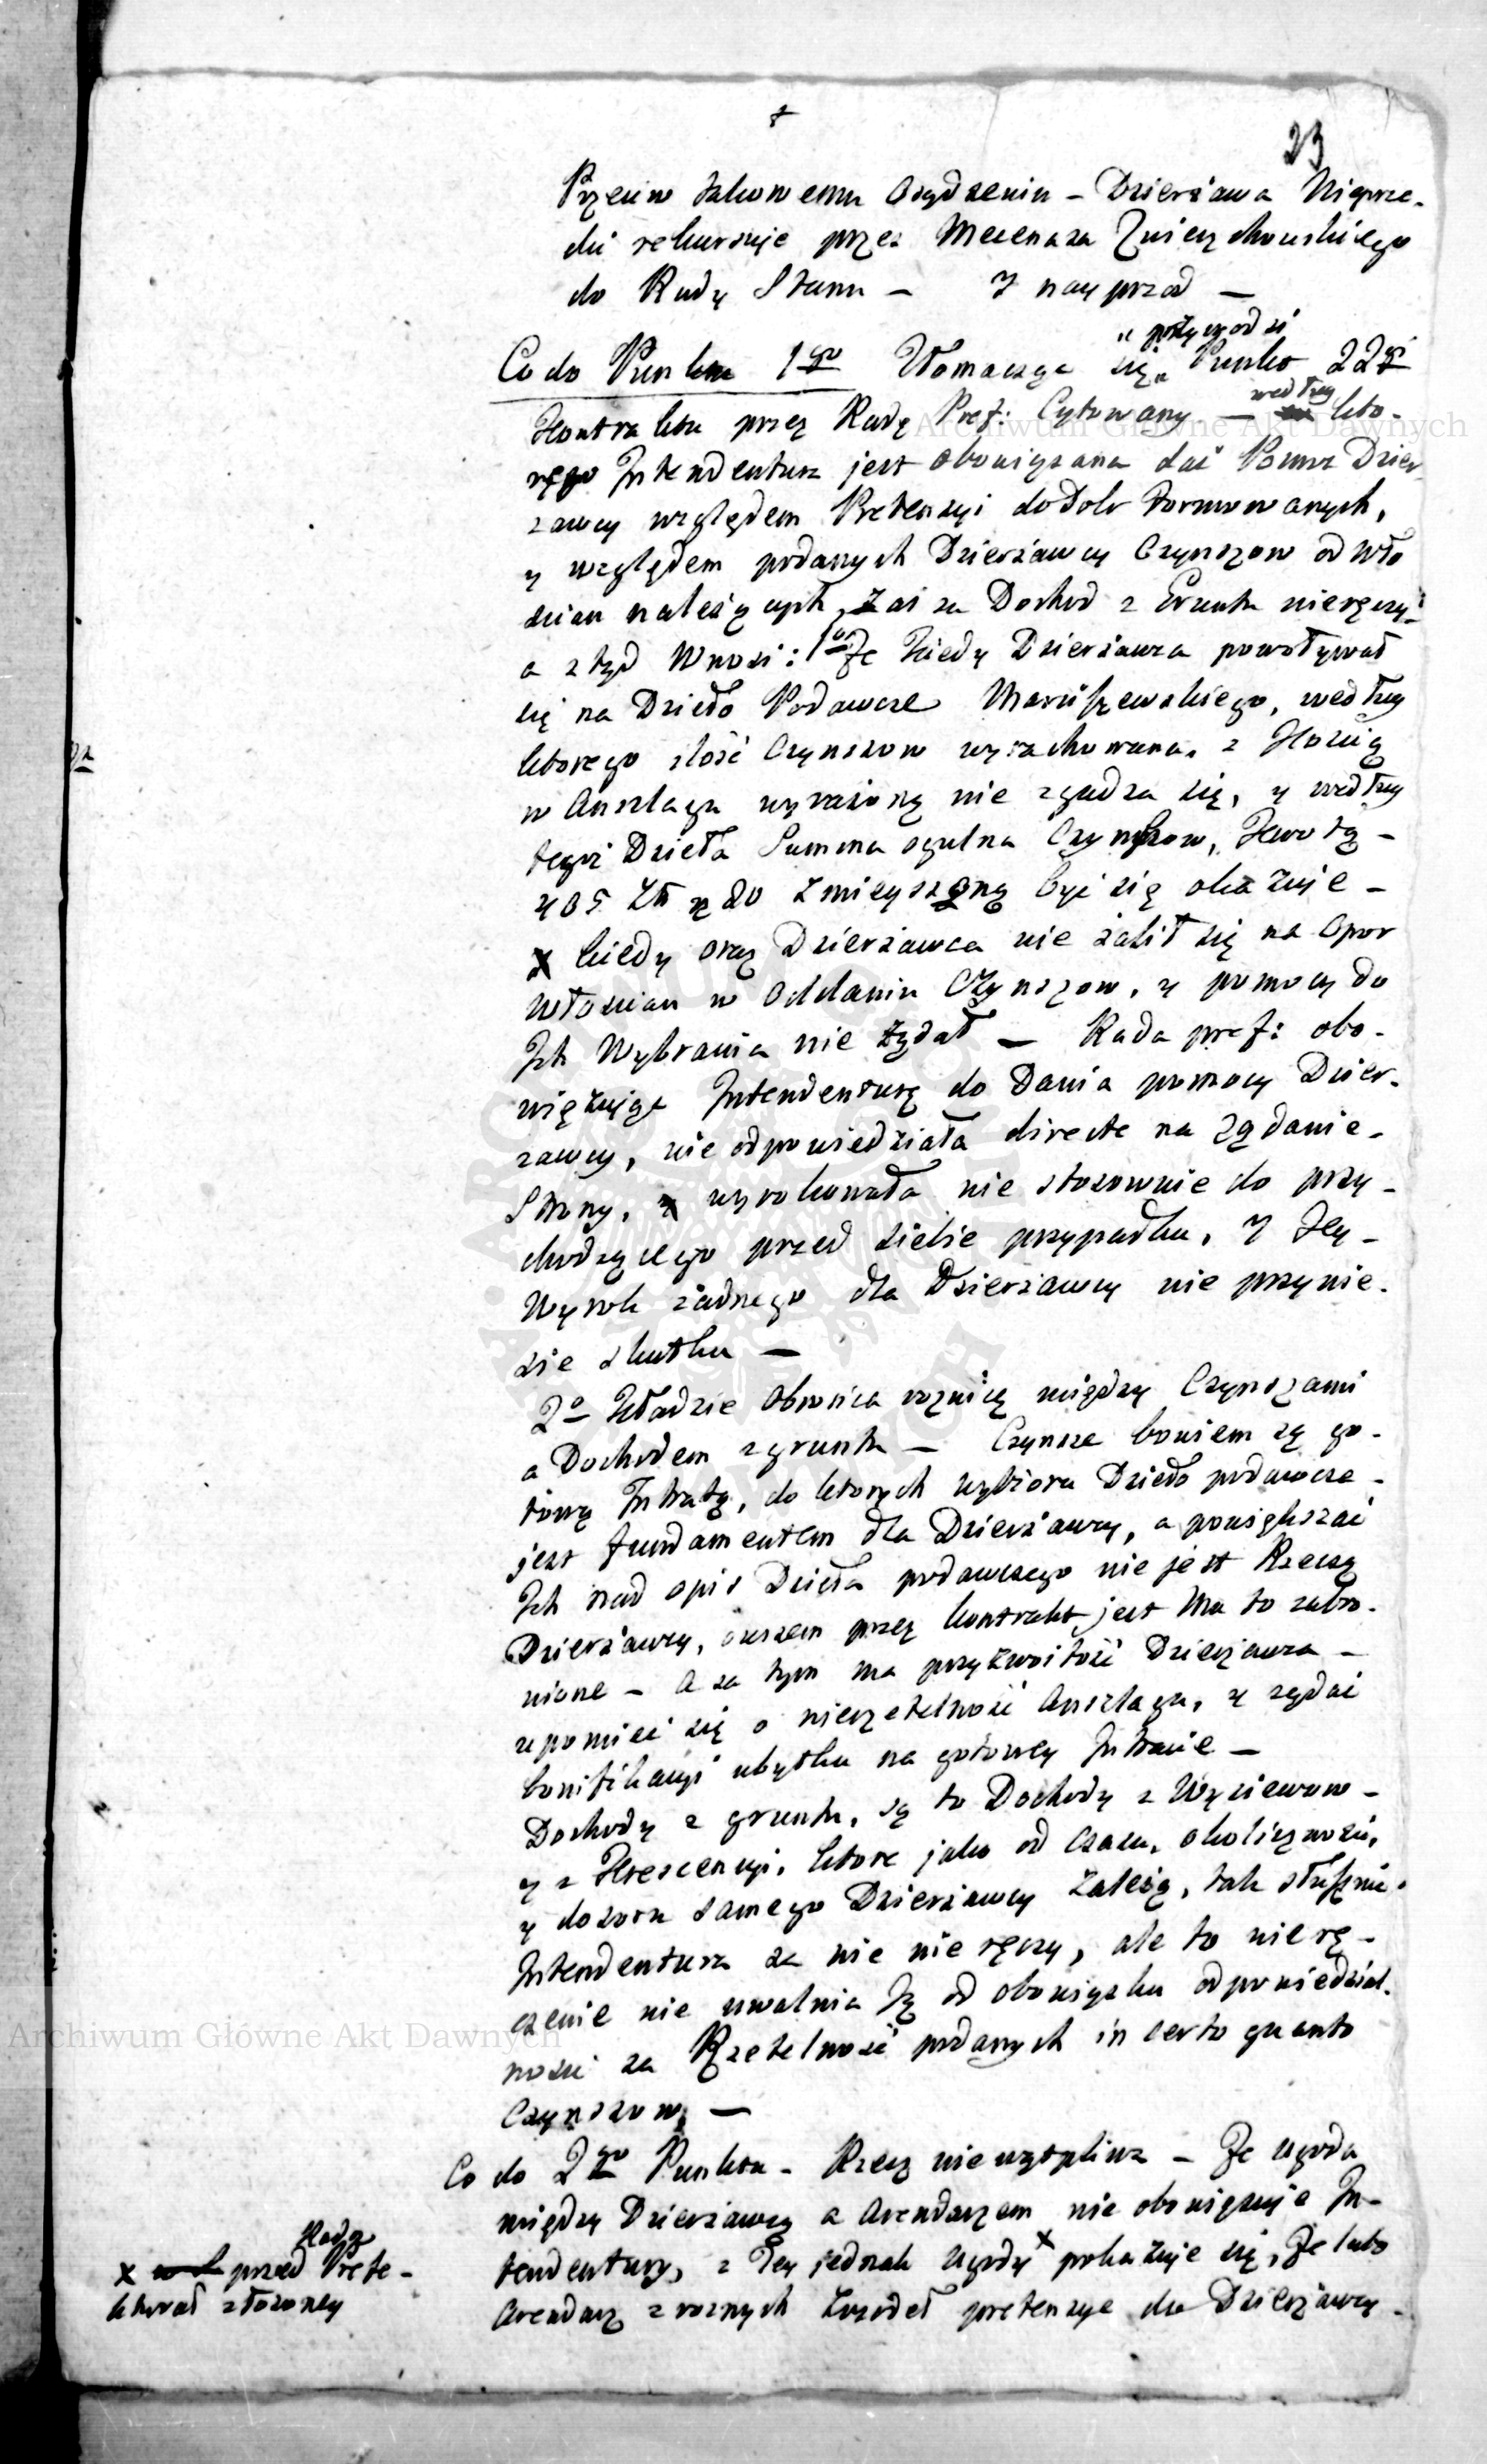 23
Przeciw takowemu Osądzeniu – Dzierżawca Nieprze-
cki rekursuje przez Mecenasa Zwierzchowskiego
do Rady Stanu – I nayprzod –
Co do Punktu 1go Tłomaczy się Punkt 22gi
Kontraktu przez Radę Pref: Cytowany – według kto-
rego Intendentura jest obowiązana dać Pomoc Dzier-
zawcy względem Pretensyi do Dobr formowanych,
y względem podanych Dzierżawcy Czynszow od Wło
scian należących, Zaś za Dochod z Gruntu nieręczy
a ztąd Wnosi: 1o Że Kiedy Dzierżawca powoływał
się na Dzieło Podawcze Maruszewskiego, według
ktorego ilość Czynszow wyrachowana, z Ilością
w Anszlagu wyrażoną nie zgadza się, y według
tegoż Dzieła Summa ogulna Czynszow, Kwotą –
405 Zł gr 20 zmieyszoną być się okazuje –
kiedy oraz Dzierżawca nie żalił się na Opor
Włoscian w Oddaniu Czynszow, y pomocy do
Ich Wybrania nie żądał – Rada pref: obo-
więzując Intendenturę do Dania pomocy Dzier-
zawcy, nie odpowiedziała directe na Żądanie –
Strony, wyrokowała nie stosownie do przy-
chodzącego przed siebie przypadku, I Jey –
Wyrok żadnego dla Dzierżawcy nie przynie-
sie skutku –
2o Kładzie Obrońca roznicę między Czynszami
a Dochodem z gruntu – Czynsze bowiem są go-
tową Intratą, do ktorych wybioru Dzieło podawcze –
jest fundamentem dla Dzierżawcy, a powiększać
Ich nad opis Dzieła podawczego nie jest Rzeczą
Dzierżawcy, owszem przez kontrakt jest Mu to zabro-
nione – A za tym ma przyzwoitość Dzierżawca –
upomieć się o nierzetelność Anszlagu, y żądać
bonifikacyi ubytku na gotowey Intracie –
Dochody z gruntu, są to Dochody z Wysiewow –
y z Krescencyi, ktore jako od czasu, okoliczności,
y dozoru samego Dzierżawcy zależą, tak słusznie
Intendentura za nie nie ręczy, ale to nierę-
czenie nie uwalnia Ją od obowiązku odpowiedzial-
ności za Rzetelność podanych in certo quanto
Czynszow, –
Co do 2go Punktu – Rzecz niewątpliwa – Że Ugoda
między Dzierżawcą a Arendarzem nie obowięzuje In-
tendentury, z Tey jednak Ugody x pokazuje się, Że lubo
Arendarz z roznych Zrzodeł pretensye do Dzierżawcy –
x przed Radą Prefe-
kturał złożoney
Archiwum Główne Akt Dawnych
Archiwum Główne Akt Dawnych